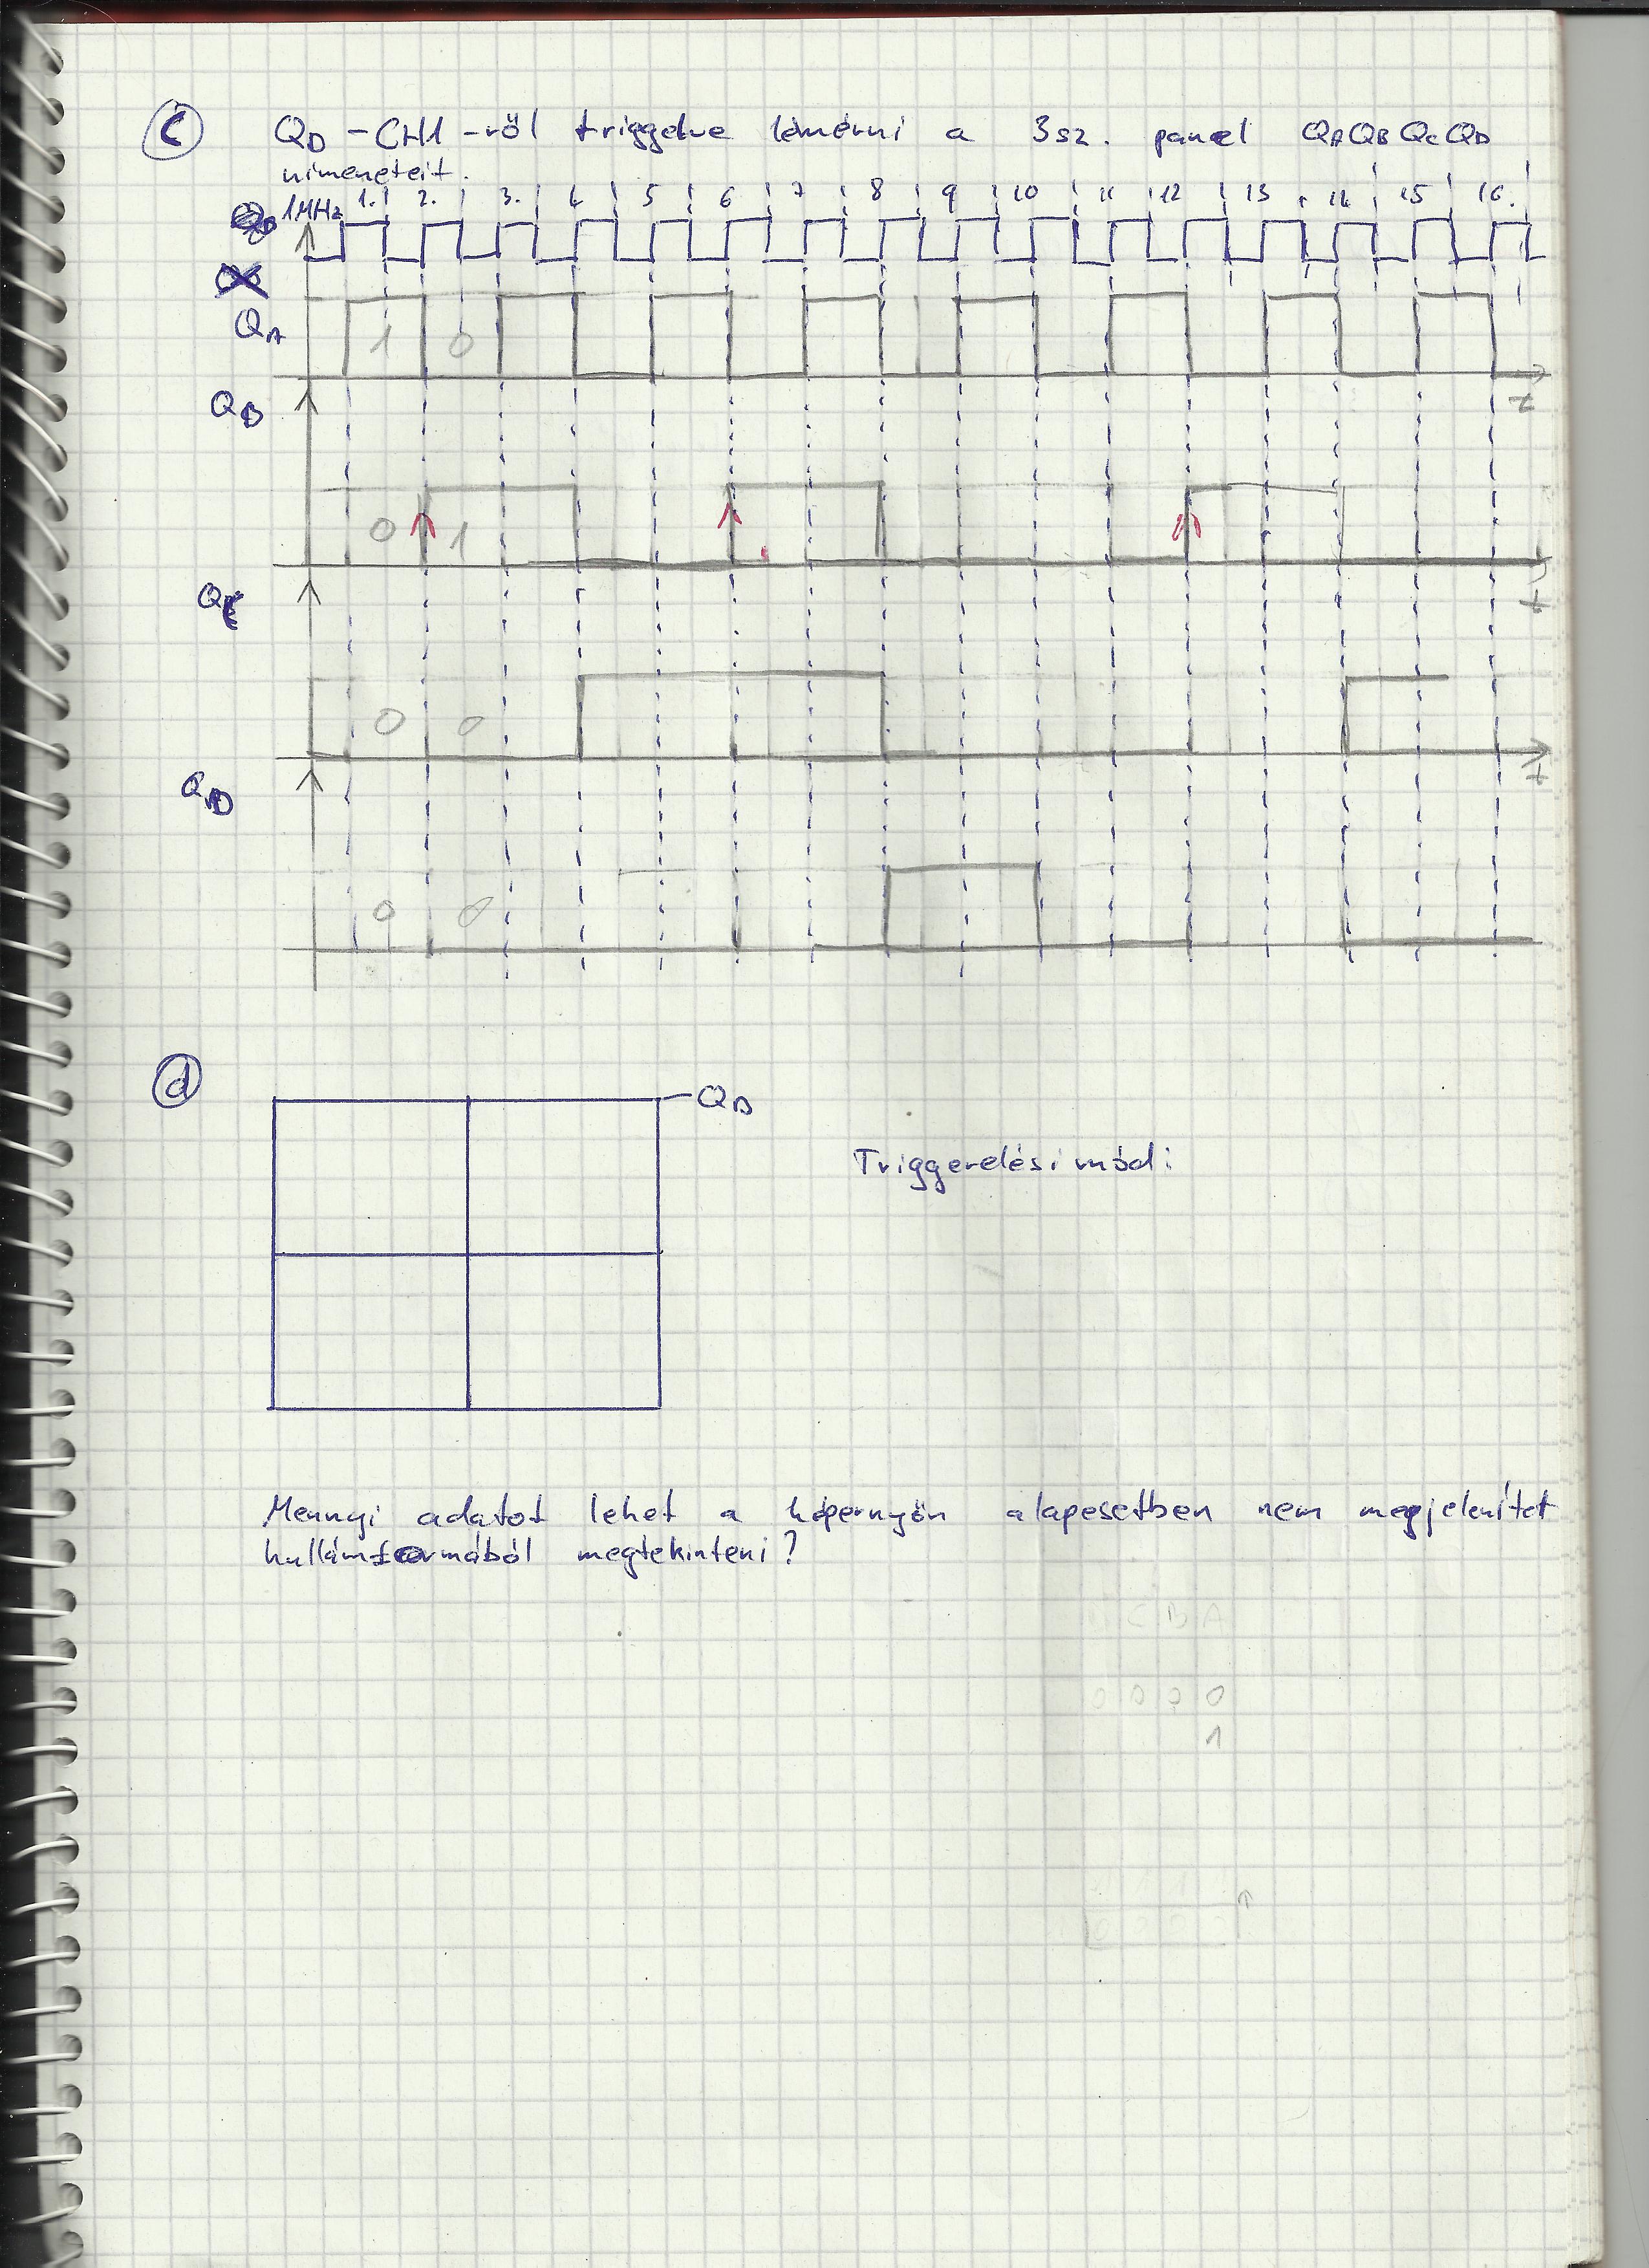 C QD - CH1 -ről triggelve lemérni a 3sz. panel QAQBQCQD
nimeneteit.
1MHz 1. 2. 3. 4 5 6 7 8 9 10 11 12 13 14 15 16.
QA 1 0
t
QB
0 1
t
QC
0 0
t
QD
0 0
d
QD
Triggerelési mód:
Mennyi adatot lehet a képernyőn alapesetben nem megjelenítet
hullámformából megtekinteni?
D C B A
0 0 0 0
1